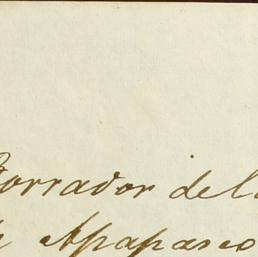 Borrador de l
Apapasco